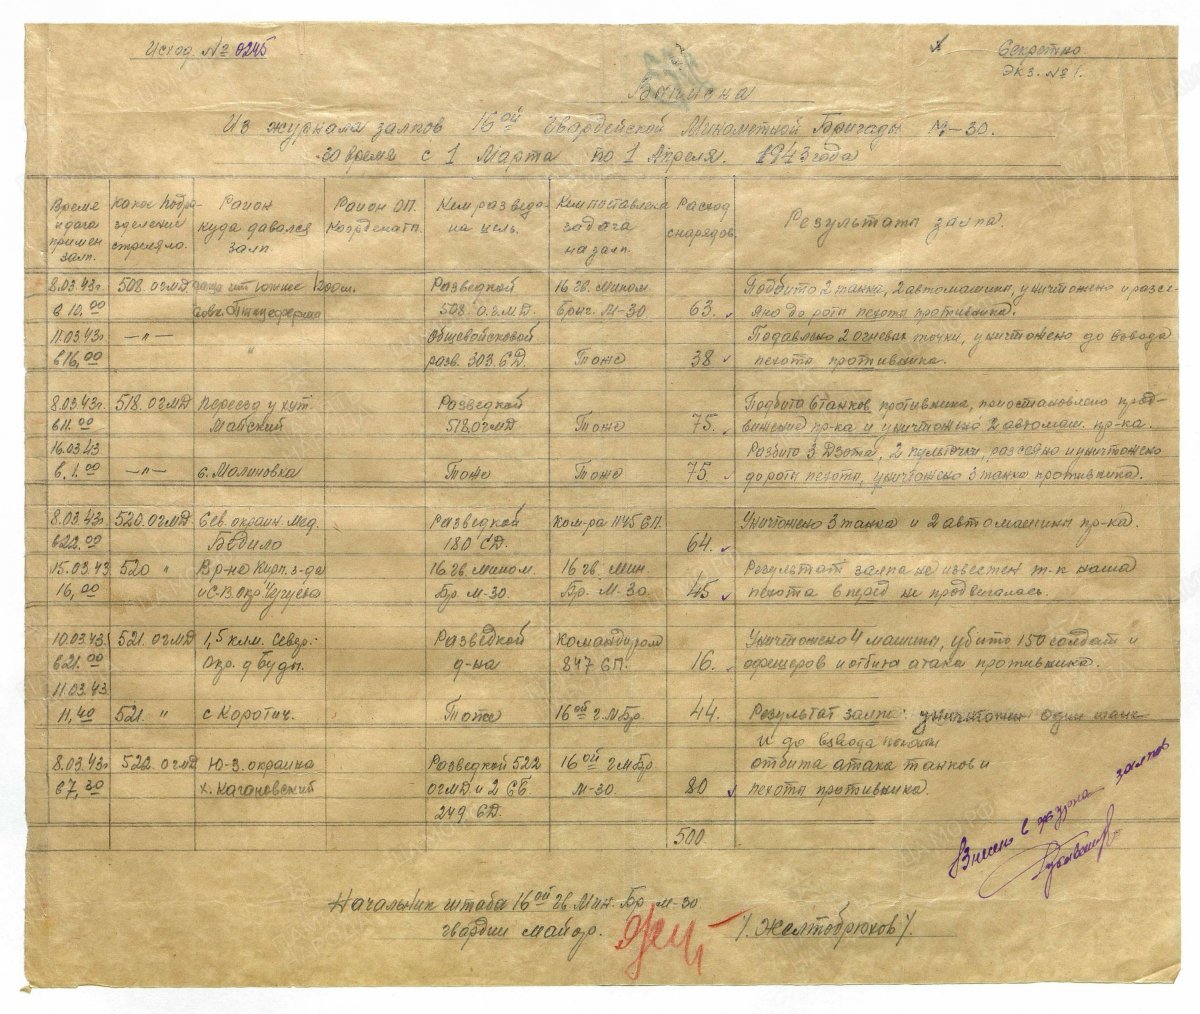 Исход. № 0245
Секретно
Экз. № 1.
Записка
Из журнала залпов 16ой Гвардейской Минометной Бригады М-30.
за время с 1 Марта по 1 Апреля. 1943 года
Время и дата примен залп.
какое подразделение стреляло.
Район куда давался залп
Район ОП. Коордената.
Кем разведана цель.
Кем поставлена задача на залп.
Расход снарядов.
Результаты залпа.
8.03.43г. 508. огмд южнее 1200м. Разведкой 16 гв. мином. Подбито 2 танка, 2 автомашины, уничтожено и рассе-
в 10.00 совх. Птицеферма 508 о.г.м.д. бриг. М-30. 63. яно до роты пехоты противника.
11.03.43г. —"— Общевойсковой Подавлено 2 огневых точки, уничтожено до взвода
в 16,00 " разв. 303 СД. Тоже 38 пехоты противника.
8.03.43г. 518. огмд Переезд у хут. Разведкой Подбито 6 танков противника, приостановлено прод-
в 11.00 Майский 518. огмд Тоже 75. вижение пр-ка и уничтожено 2 автомаш. пр-ка.
16.03.43 Разбито 3 Дзота, рассеяно и уничтожено
в. 1.00 —"— с. Малиновка Тоже Тоже 75. до роты пехоты, уничтожено 3 танка противника.
8.03.43г. 520. огмд Сев. окраин. Мед. Разведкой ком-ра 1145 СП. Уничтожено 3 танка и 2 автомашины пр-ка.
в 22.00 180 СД. 64.
15.03.43 520 " В р-но Кирп. з-да 16 гв. мином. 16 гв. мин. Результат залпа не известен т-к наша
16,00 и С-В. окр. Чугуева Бр. М-30 Бр. М-30. 45 пехота вперед не продвегалась.
10.03.43г. 521. огмд 1,5 клм. Север.- Разведкой Командиром Уничтожено 4 машины, убито 150 солдат и
в 21.00 Окр. д. Буды. д-на 847 СП. 16. офицеров и отбита атака противника.
11.03.43.
11,40 521. " с Коротич. Тоже 16ой г. МБр. 44. Результат залпа: уничтожен один танк
и до взвода пехоты
8.03.43г. 522. огмд Ю-З. окраина Разведкой 522 16ой гМбр отбита атака танков и
в 7,30 х. Кагановский огмд и 2 СБ. М-30. 80 пехоты противника.
249 СД.
500.
Внесено в журнал залпов
Начальник штаба 16ой Гв. Мин. Бр М-30
гвардии майор. /. Желтобрюхов /.